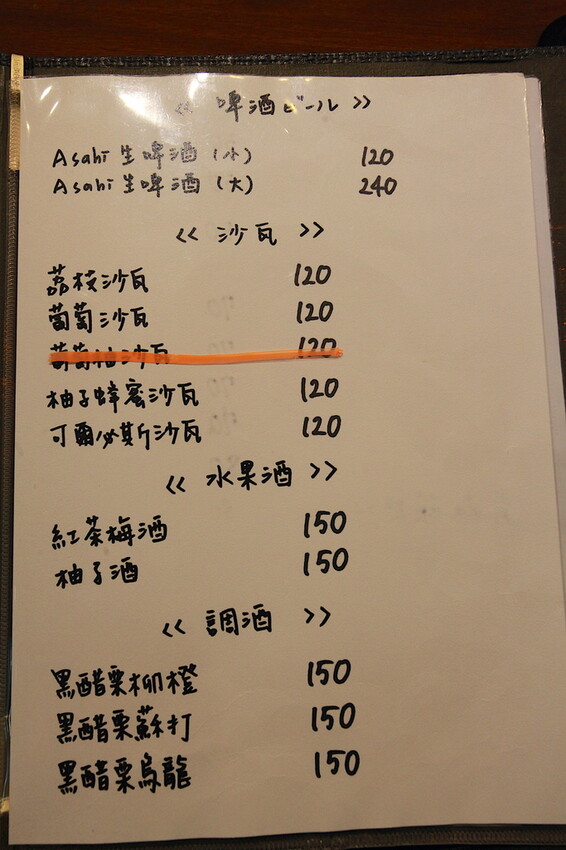 << 啤酒ビール >>
Asahi生啤酒(小) 120
Asahi生啤酒(大) 240
<< 沙瓦 >>
荔枝沙瓦 120
葡萄沙瓦 120
葡萄柚沙瓦 120
柚子蜂蜜沙瓦 120
可爾必斯沙瓦 120
<< 水果酒 >>
紅茶梅酒 150
柚子酒 150
<< 調酒 >>
黑醋栗柳橙 150
黑醋栗蘇打 150
黑醋栗烏龍 150